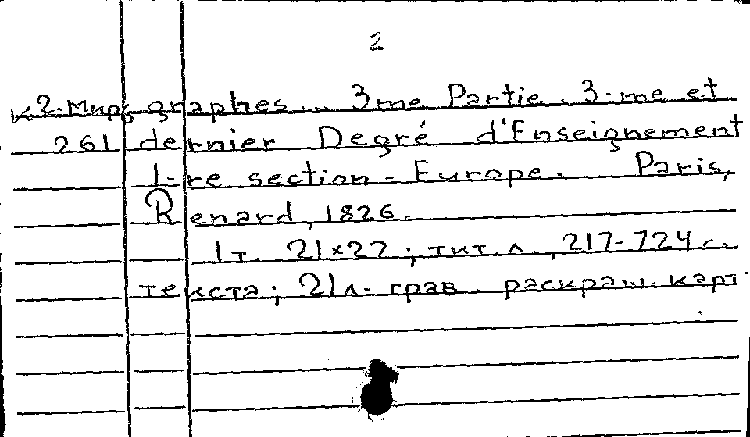 2
к2-Мир, graphes... 3me Partie. 3-me et
261 dernier Degré d'Enseignement
1-re section - Europe. Paris,
Renard, 1826.
1 т. 21×27; тит. л., 217-724 с.
текста; 21 л. грав. раскраш. карт.